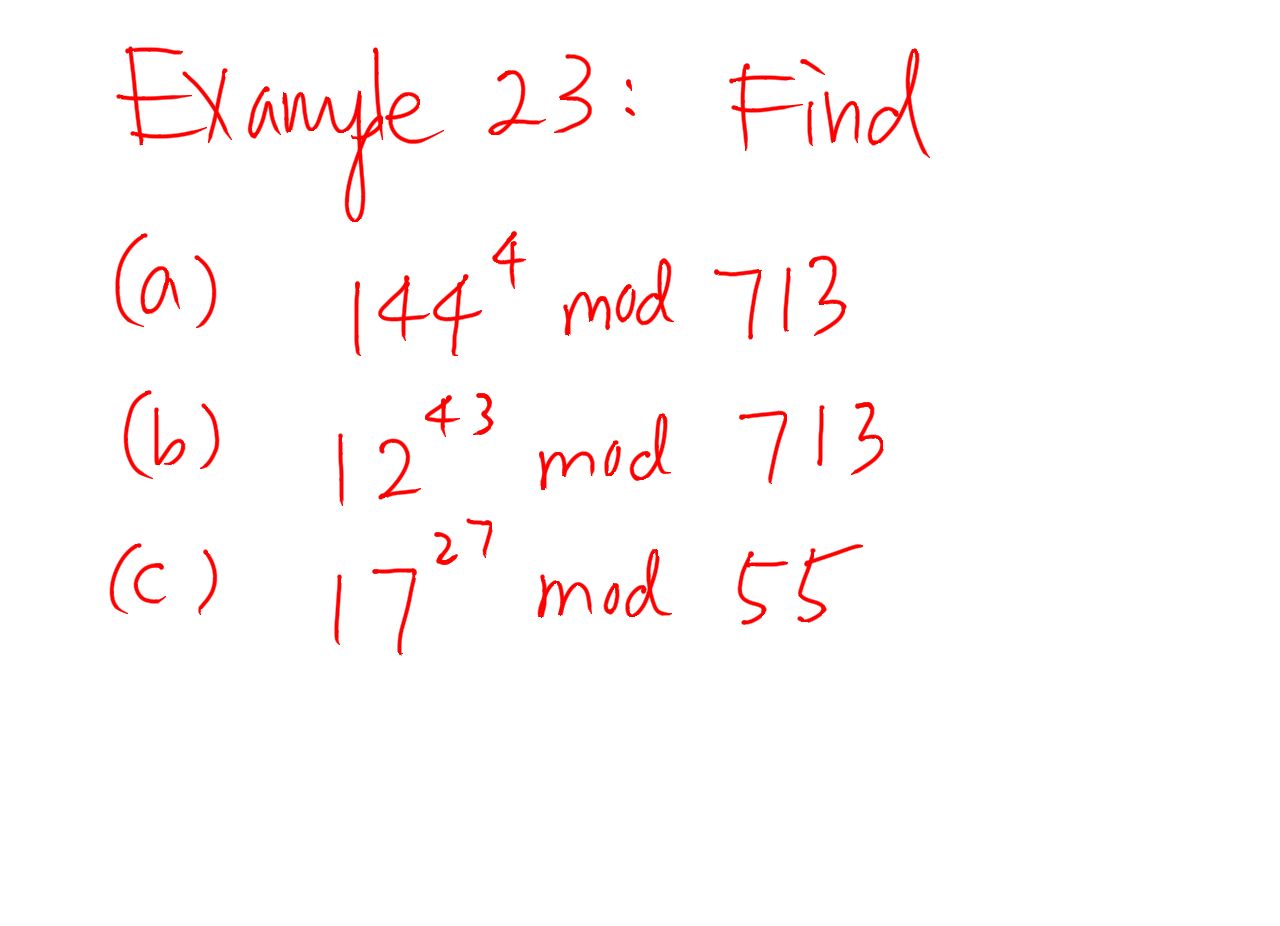 Example 23: Find
(a) 144⁴ mod 713
(b) 12⁴³ mod 713
(c) 17²⁷ mod 55